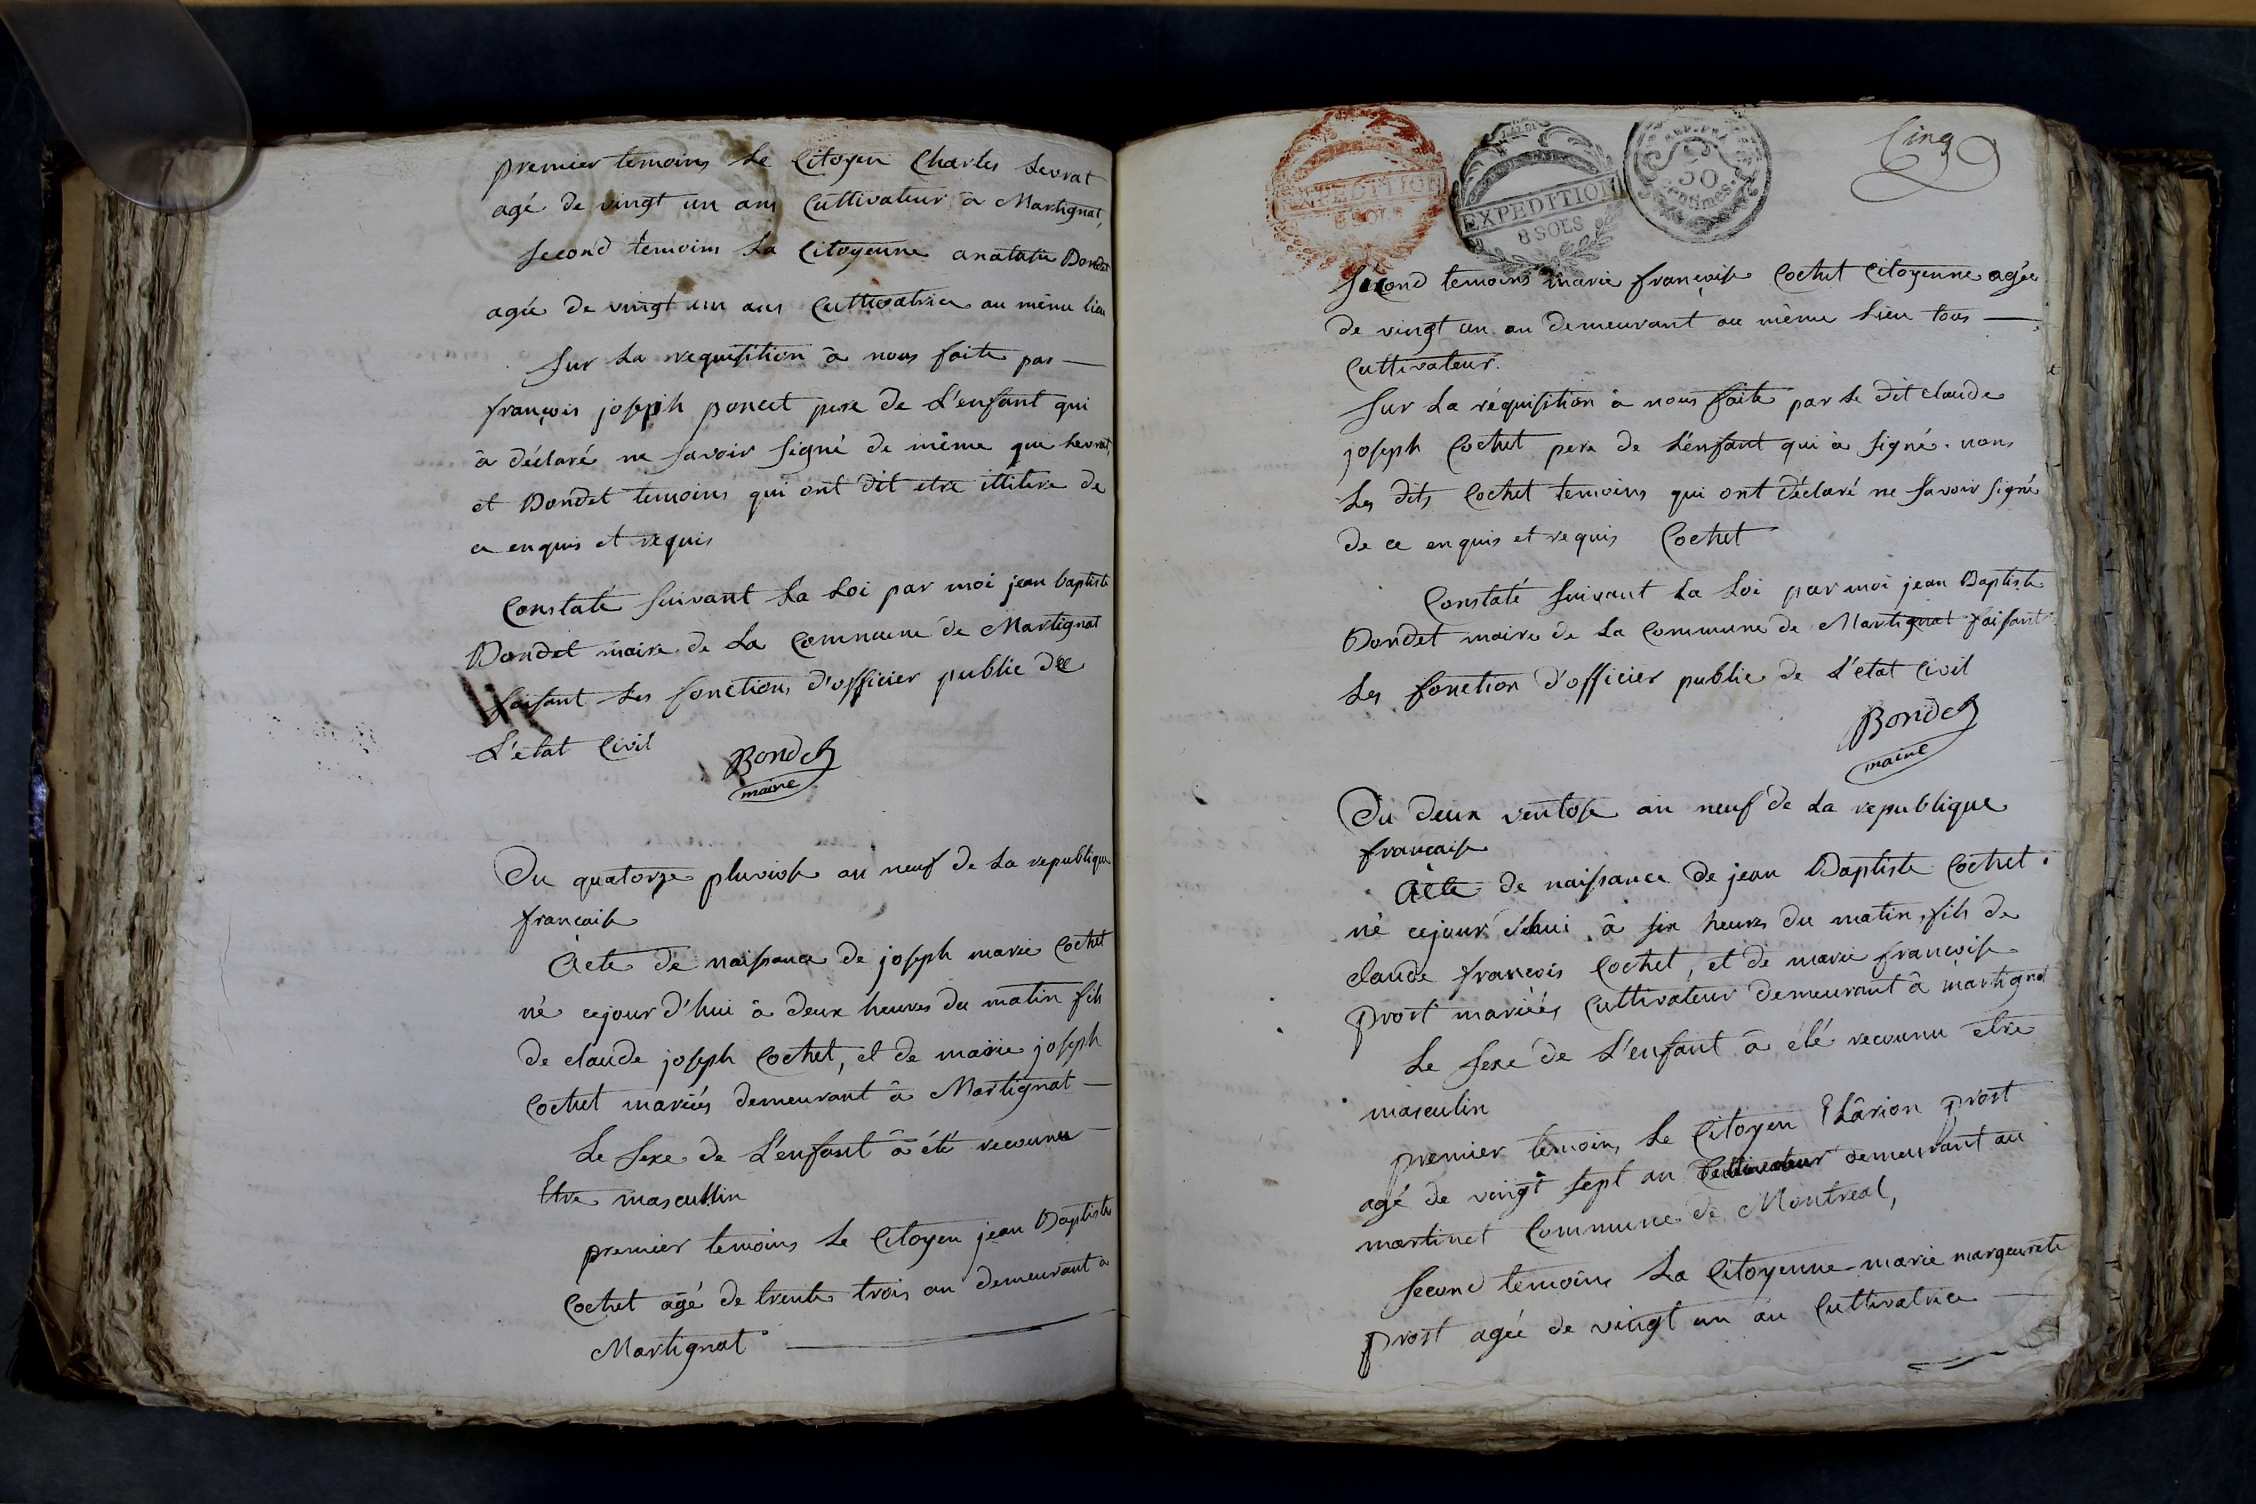 premier temoins Le Citoyen Charles Levrat
agé de vingt un ans Cultivateur à Martignat,
second temoins La Citoyenne anatalie Bondet
agée de vingt un ans Cultivatrice au même lieu
Sur La requisition à nous faite par —
françois joseph poncet pere de L'enfant qui
à déclaré ne savoir signé de même que Levrat,
et Bondet temoins qui ont dit etre illitere de
ce enquis et requis
Constaté suivant La Loi par moi jean baptiste
Bondet maire de La Commune de Martignat
faisant Les fonctions d'officier public de
L'etat Civil
Bondet
maire
Du quatorze pluviose an neuf de La republique
française
Acte de naissance de joseph marie Cochet
né cejourd'hui à deux heures du matin fils
de claude joseph Cochet, et de marie joseph
Cochet mariés demeurant à Martignat —
Le sexe de L'enfant à été reconnu —
Etre masculin
premier temoins Le Citoyen jean Baptiste
Cochet agé de trente trois an demeurant a
Martignat
Cinq
EXPEDITION
8 SOLS
EXPEDITION
8 SOLS
REP. FRA
50
centimes
Second temoins marie françoise Cochet Citoyenne agée
de vingt un an demeurant au même Lieu tous —
Cultivateur.
Sur La réquisition à nous faite par Le dit claude
joseph Cochet pere de L'enfant qui à signé. nons
Les dits Cochet temoins qui ont déclaré ne savoir signé
de ce enquis et requis Cochet
Constaté suivant La Loi par moi jean Baptiste
Bondet maire de La Commune de Martignat faisant
Les fonction d'officier public de L'etat Civil
Bondet
maire
Du deux ventose an neuf de La republique
française
Acte de naissance de jean Baptiste Cochet.
né cejourd'hui à six heures du matin, fils de
claude françois Cochet, et de marie françoise
prost mariées Cultivateur demeurant à martignat
Le sexe de L'enfant à été reconnu etre
masculin
premier temoins Le Citoyen Elârion prost
agé de vingt sept an Cultivateur demeurant au
martinet Commune de Montreal,
Second temoins La Citoyenne marie margeurete
prost agée de vingt un an Cultivatrice —